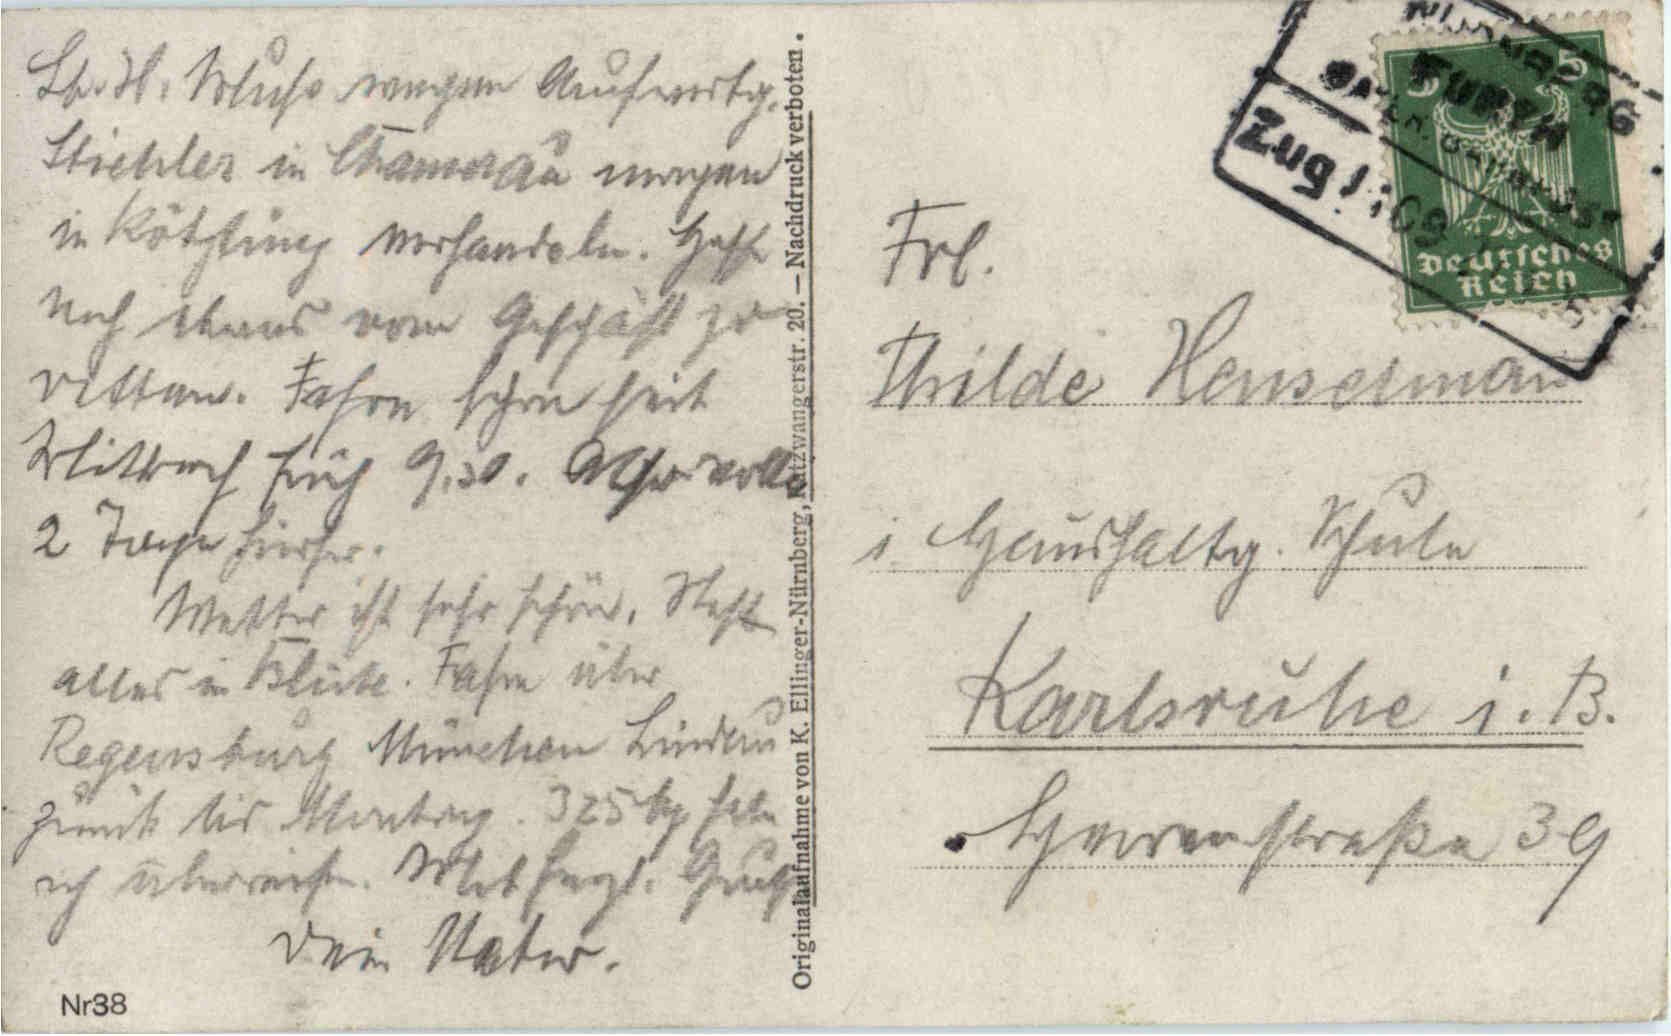 Lb. H. Muss wegen Aufwertg.
Stiehler in Chamerau morgen
in Kötzting verhandeln. Hoffe
noch etwas vom Geschäft zu
retten. Fahre schon seit
Mittwoch früh 9.30.
2 Tage hierher.
Wetter ist sehr schön. Steht
alles in Blüte. Fahre über
Regensburg München Lindau
zurück bis Montag. 325
ich überreich. Mit herzl. Gruß
Dein Vater.
Nr38
Originalaufnahme von K. Ellinger-Nürnberg, Katzwangerstr. 20. — Nachdruck verboten.
NÜRNBERG
FURTH
BAYER. BAHNPOST
Zug 1109
5 5
Deutsches
Reich
Frl.
Thilde Henselman
i. Haushaltg. Schule
Karlsruhe i. B.
Herrenstraße 39